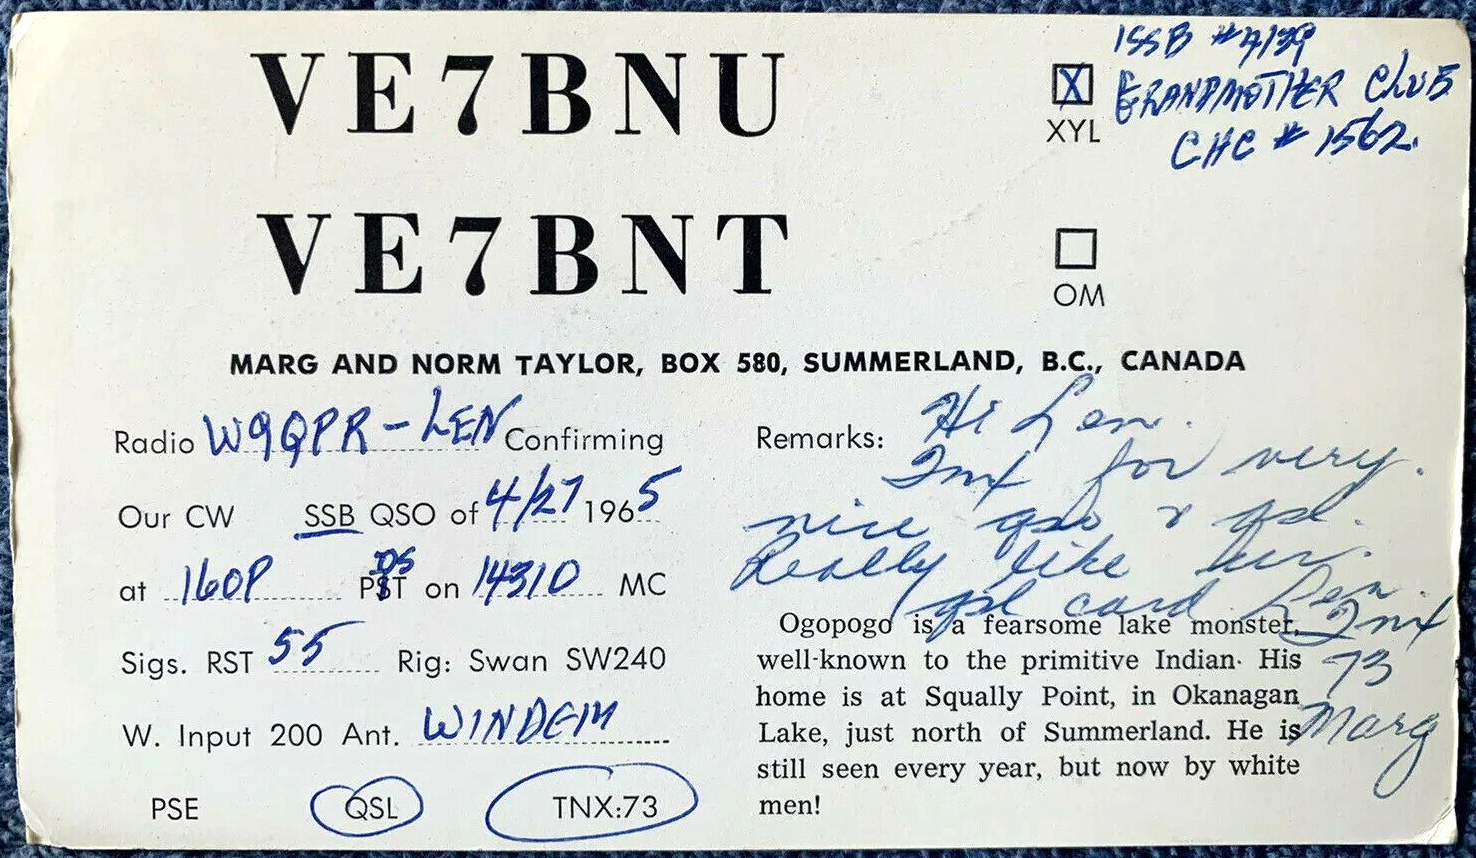 VE7BNU
X
XYL
ISSB #4139
GRANDMOTHER CLUB
CHC # 1562.
VE7BNT
OM
MARG AND NORM TAYLOR, BOX 580, SUMMERLAND, B.C., CANADA
Radio W9QPR - LEN Confirming
Our CW SSB QSO of 4/27 1965
at 160P PDST on 14310 MC
Sigs. RST 55 Rig: Swan SW240
W. Input 200 Ant. WINDOM
PSE QSL TNX:73
Remarks: Hi Len.
Tnx for very.
nice qso & qsl.
Really like ur.
qsl card Len.
Tnx
73
Marg
Ogopogo is a fearsome lake monster,
well-known to the primitive Indian. His
home is at Squally Point, in Okanagan
Lake, just north of Summerland. He is
still seen every year, but now by white
men!